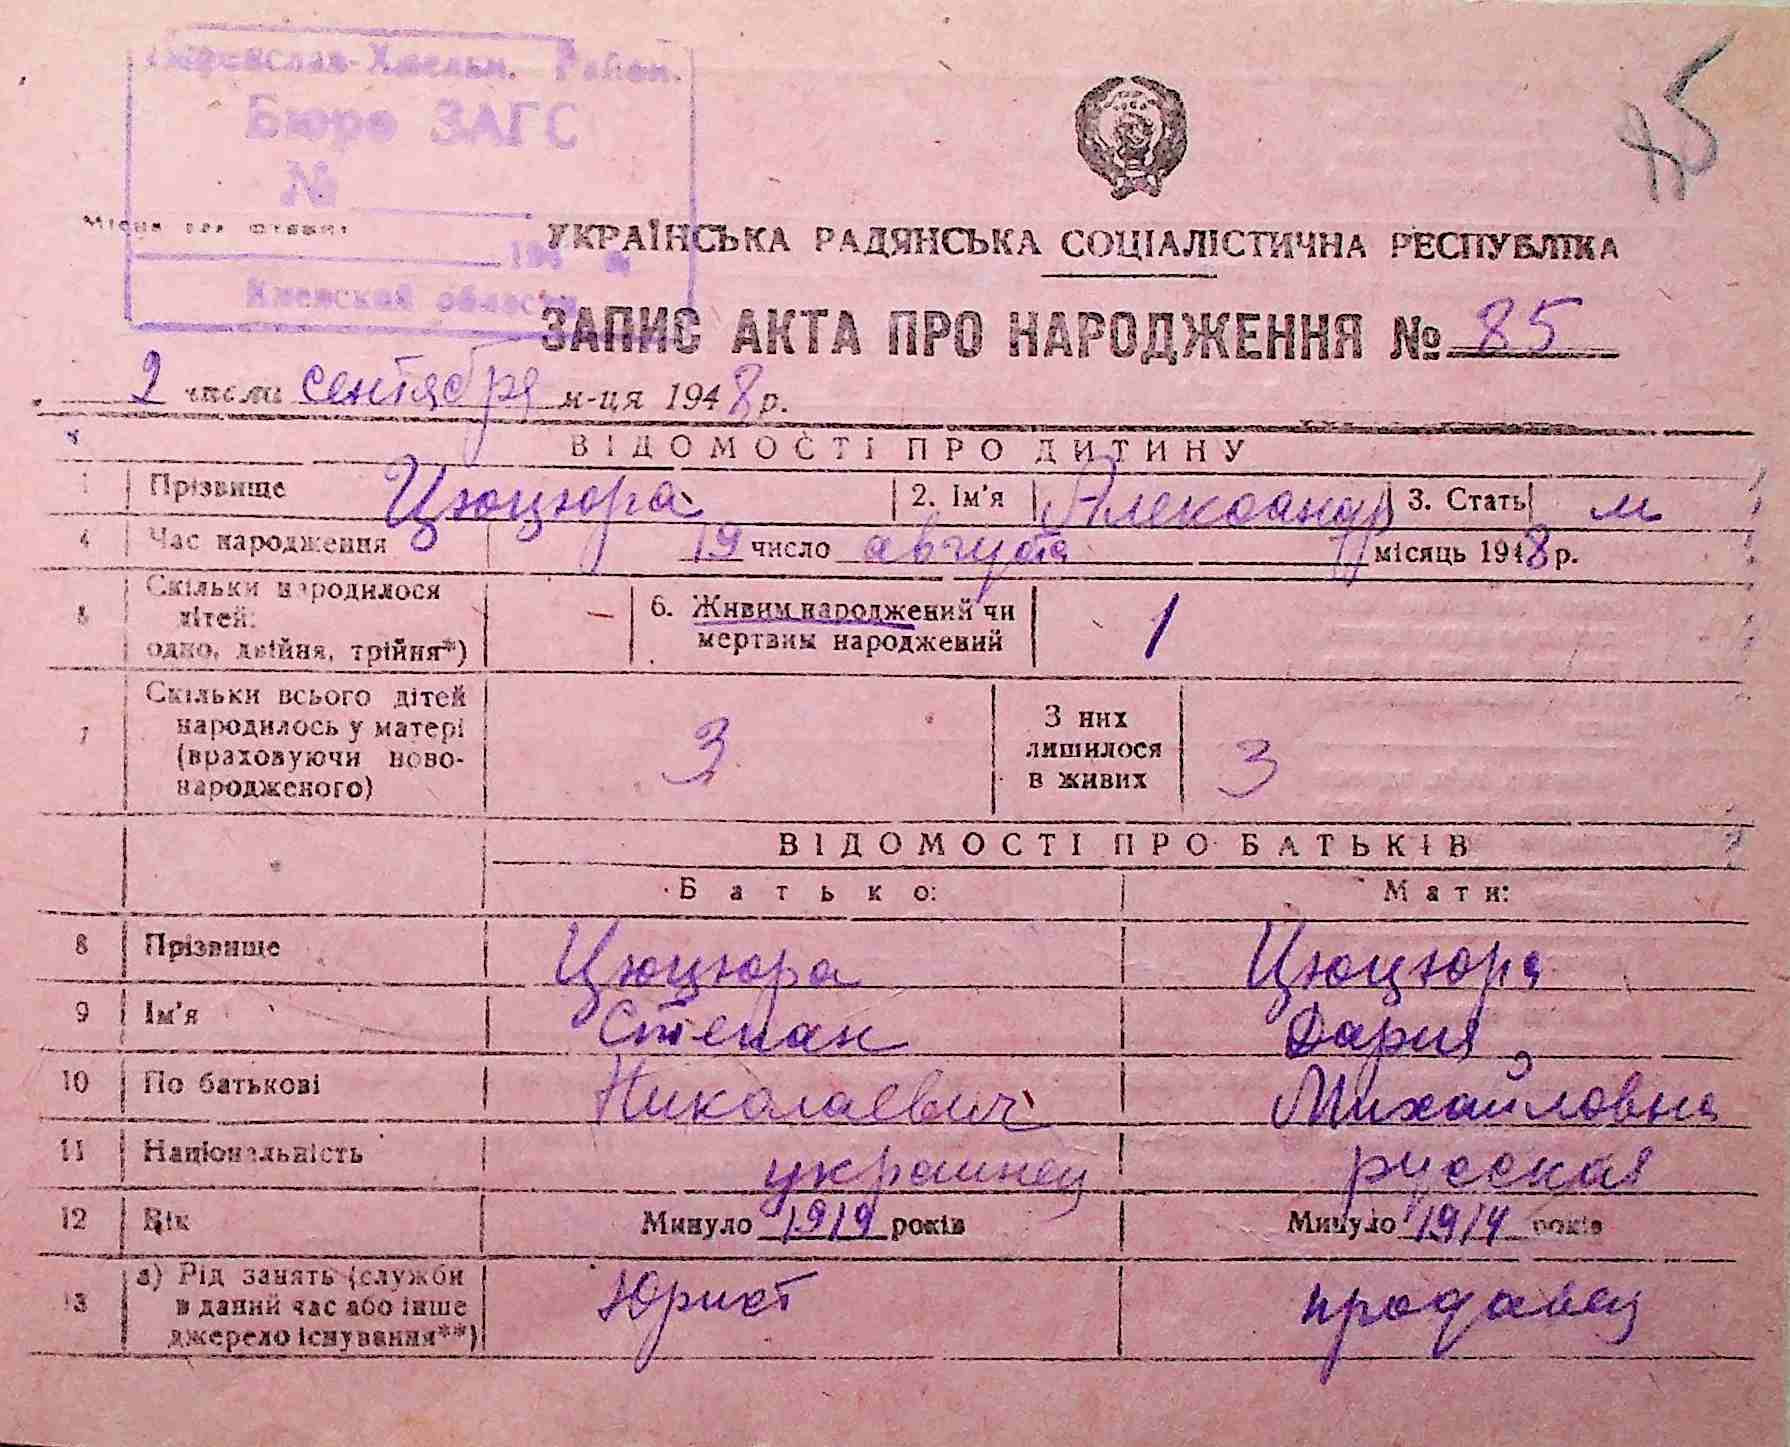 Переяслав-Хмельн. Район.
Бюро ЗАГС
№
85
Місце для штампа
194
Киевской области
УКРАЇНСЬКА РАДЯНСЬКА СОЦІАЛІСТИЧНА РЕСПУБЛІКА
ЗАПИС АКТА ПРО НАРОДЖЕННЯ № 85
2 числа сентября м-ця 1948 р.
ВІДОМОСТІ ПРО ДИТИНУ
1 Прізвище Цюцюра 2. Ім'я Александр 3. Стать м
4 Час народження 19 число августа місяць 1948 р.
5 Скільки народилося дітей: одно, двійня, трійня*) – 6. Живим народжений чи мертвим народжений 1
7 Скільки всього дітей народилось у матері (враховуючи ново-народженого) 3 З них лишилося в живих 3
ВІДОМОСТІ ПРО БАТЬКІВ
Батько: Мати:
8 Прізвище Цюцюра Цюцюра
9 Ім'я Степан Дария
10 По батькові Николаевич Михайловна
11 Національність украинец русская
12 Вік Минуло 1919 років Минуло 1914 років
13 а) Рід занять (служби в даний час або інше джерело існування**) Юрист продавец